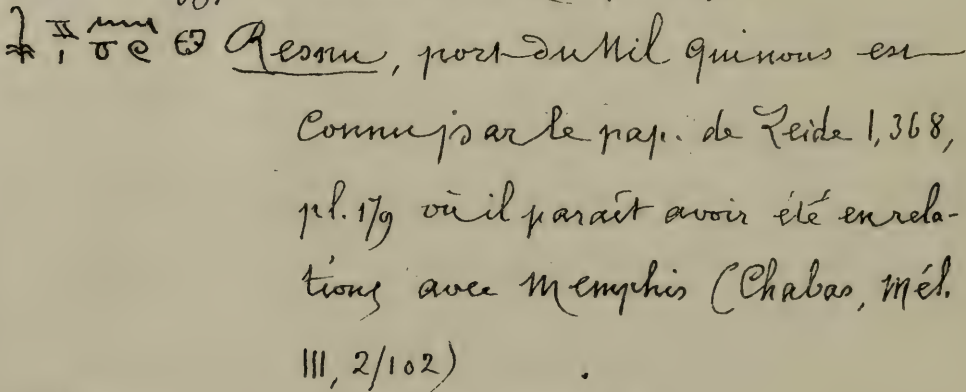 Resnu, port du Nil qui nous est
connu par le pap. de Leide 1, 368,
pl. 179 où il paraît avoir été en rela-
tions avec Memphis (Chabas, Mél.
III, 2/102)